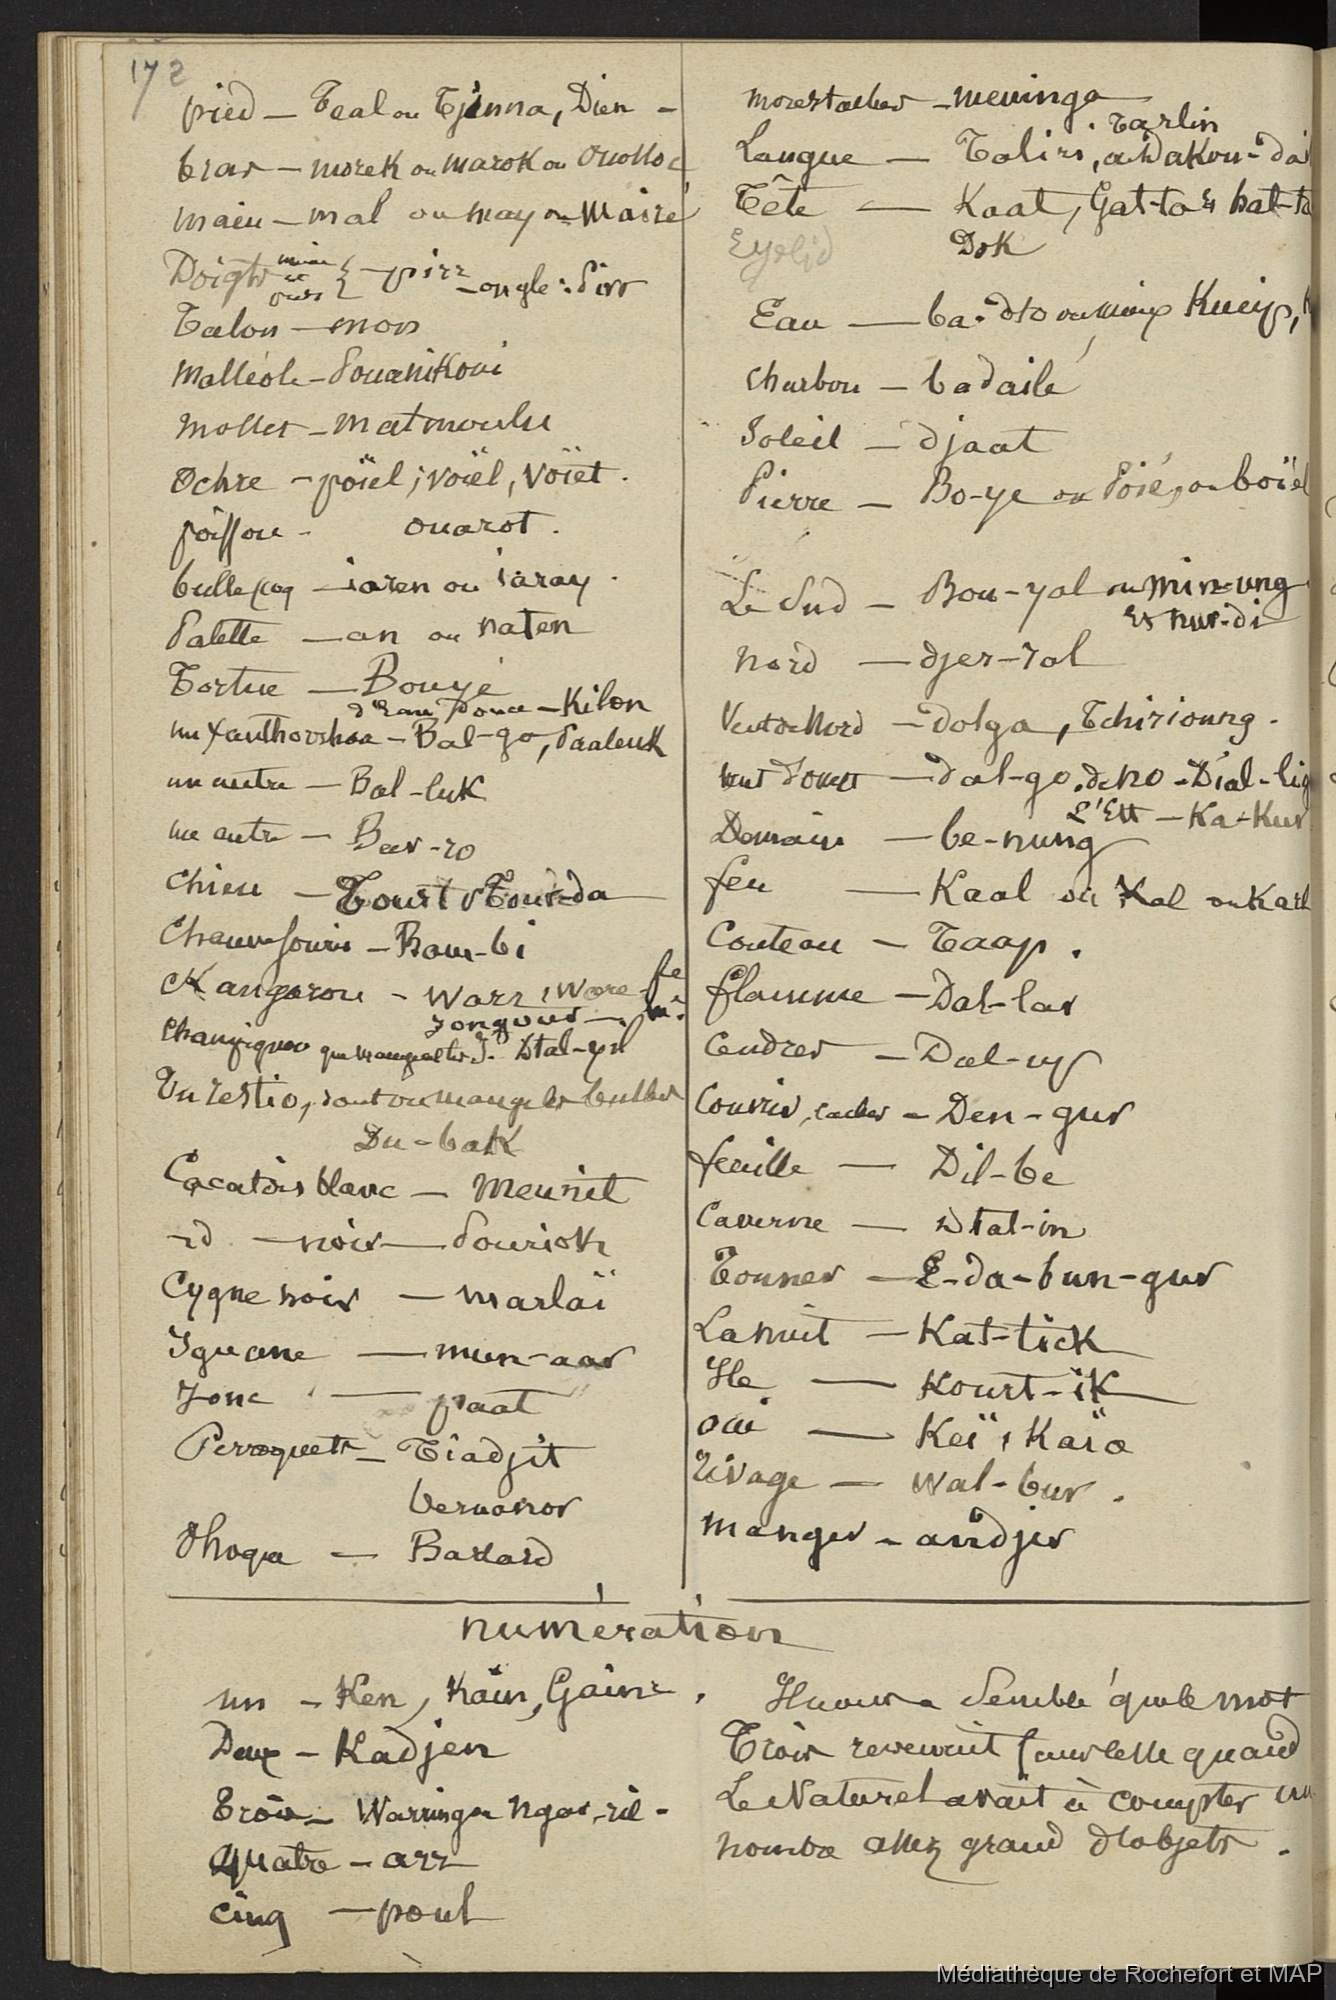 172
pied — Teal ou Tjinna, Dien -
bras — morek ou marok ou
main — mal ou may ou Maire
Doigts main et pieds } — pirr — ongle : Pirr
Talon — mon
Malléole — Pouanikoui
Mollet — matmoulu
Ochre — poïel ; voïel, voïet.
poisson — ouarot.
— iaren ou iaray.
Palette — an ou naten
Tortue — Bouyé
d'Eau Douce — Kilon
un Xanthorrhea — Bal-go, Paaluk
un autre — Bal-luk
un autre — Bar-ro
Chien — Tourt & Tourda
Chauve souris — Bam-bi
Kangarou — Warr, Wore
Yongour —
Champignon que mangent les I. Dtal-yil
Un restio, dont on mange les bulbes
Du-bak
Cacatois blanc — Meunit
id — noir — Pouriok
Cygne noir — marlaï
Iguane — mun-aar
Jonc — paat
Perroquets — Tiadjit
bernanor
Phoque — Barrard
moustaches — meninga
Tarlin
Langue — Talin,
Tête — Kaat, Gat-ta & kat-ta
Eyelid Dok
Eau — ba-dto ou mieux Kueip,
Charbon — badailé
Soleil — djaat
Pierre — Bo-ye ou Poié, ou boïel
Le Sud — Bou-yal ou Min-ung
Et nur-di
Nord — djer-ral
Vent de Nord — Dolga, Tchirioung.
vent d'ouest — dal-go. de NO - Dial-lig
L'Est — Ka-Kur
Demain — be-nung
feu — Kaal ou Kal ou Karl
Couteau — Taap.
flamme — Dal-lar
Cendres — Dal-up
Couvrir, cacher — Den-gur
feuille — Dil-be
Caverne — Dtal-in
Tonner — E-da-bun-gur
La nuit — Kat-tick
Ile — Kourt-ik
oui — Keï, Kaia
rivage — wal-bur.
manger — andjir
numération
un — Ken, Kaïn, Gain.
Deux — Kadjen
Trois — Warringa Ngar-ril -
Quatre — arr
Cinq — poul
Il nous a semblé que le mot
Trois revenait sans cesse quand
Le Naturel avait à compter un
nombre assez grand d'objets.
Médiathèque de Rochefort et MAP